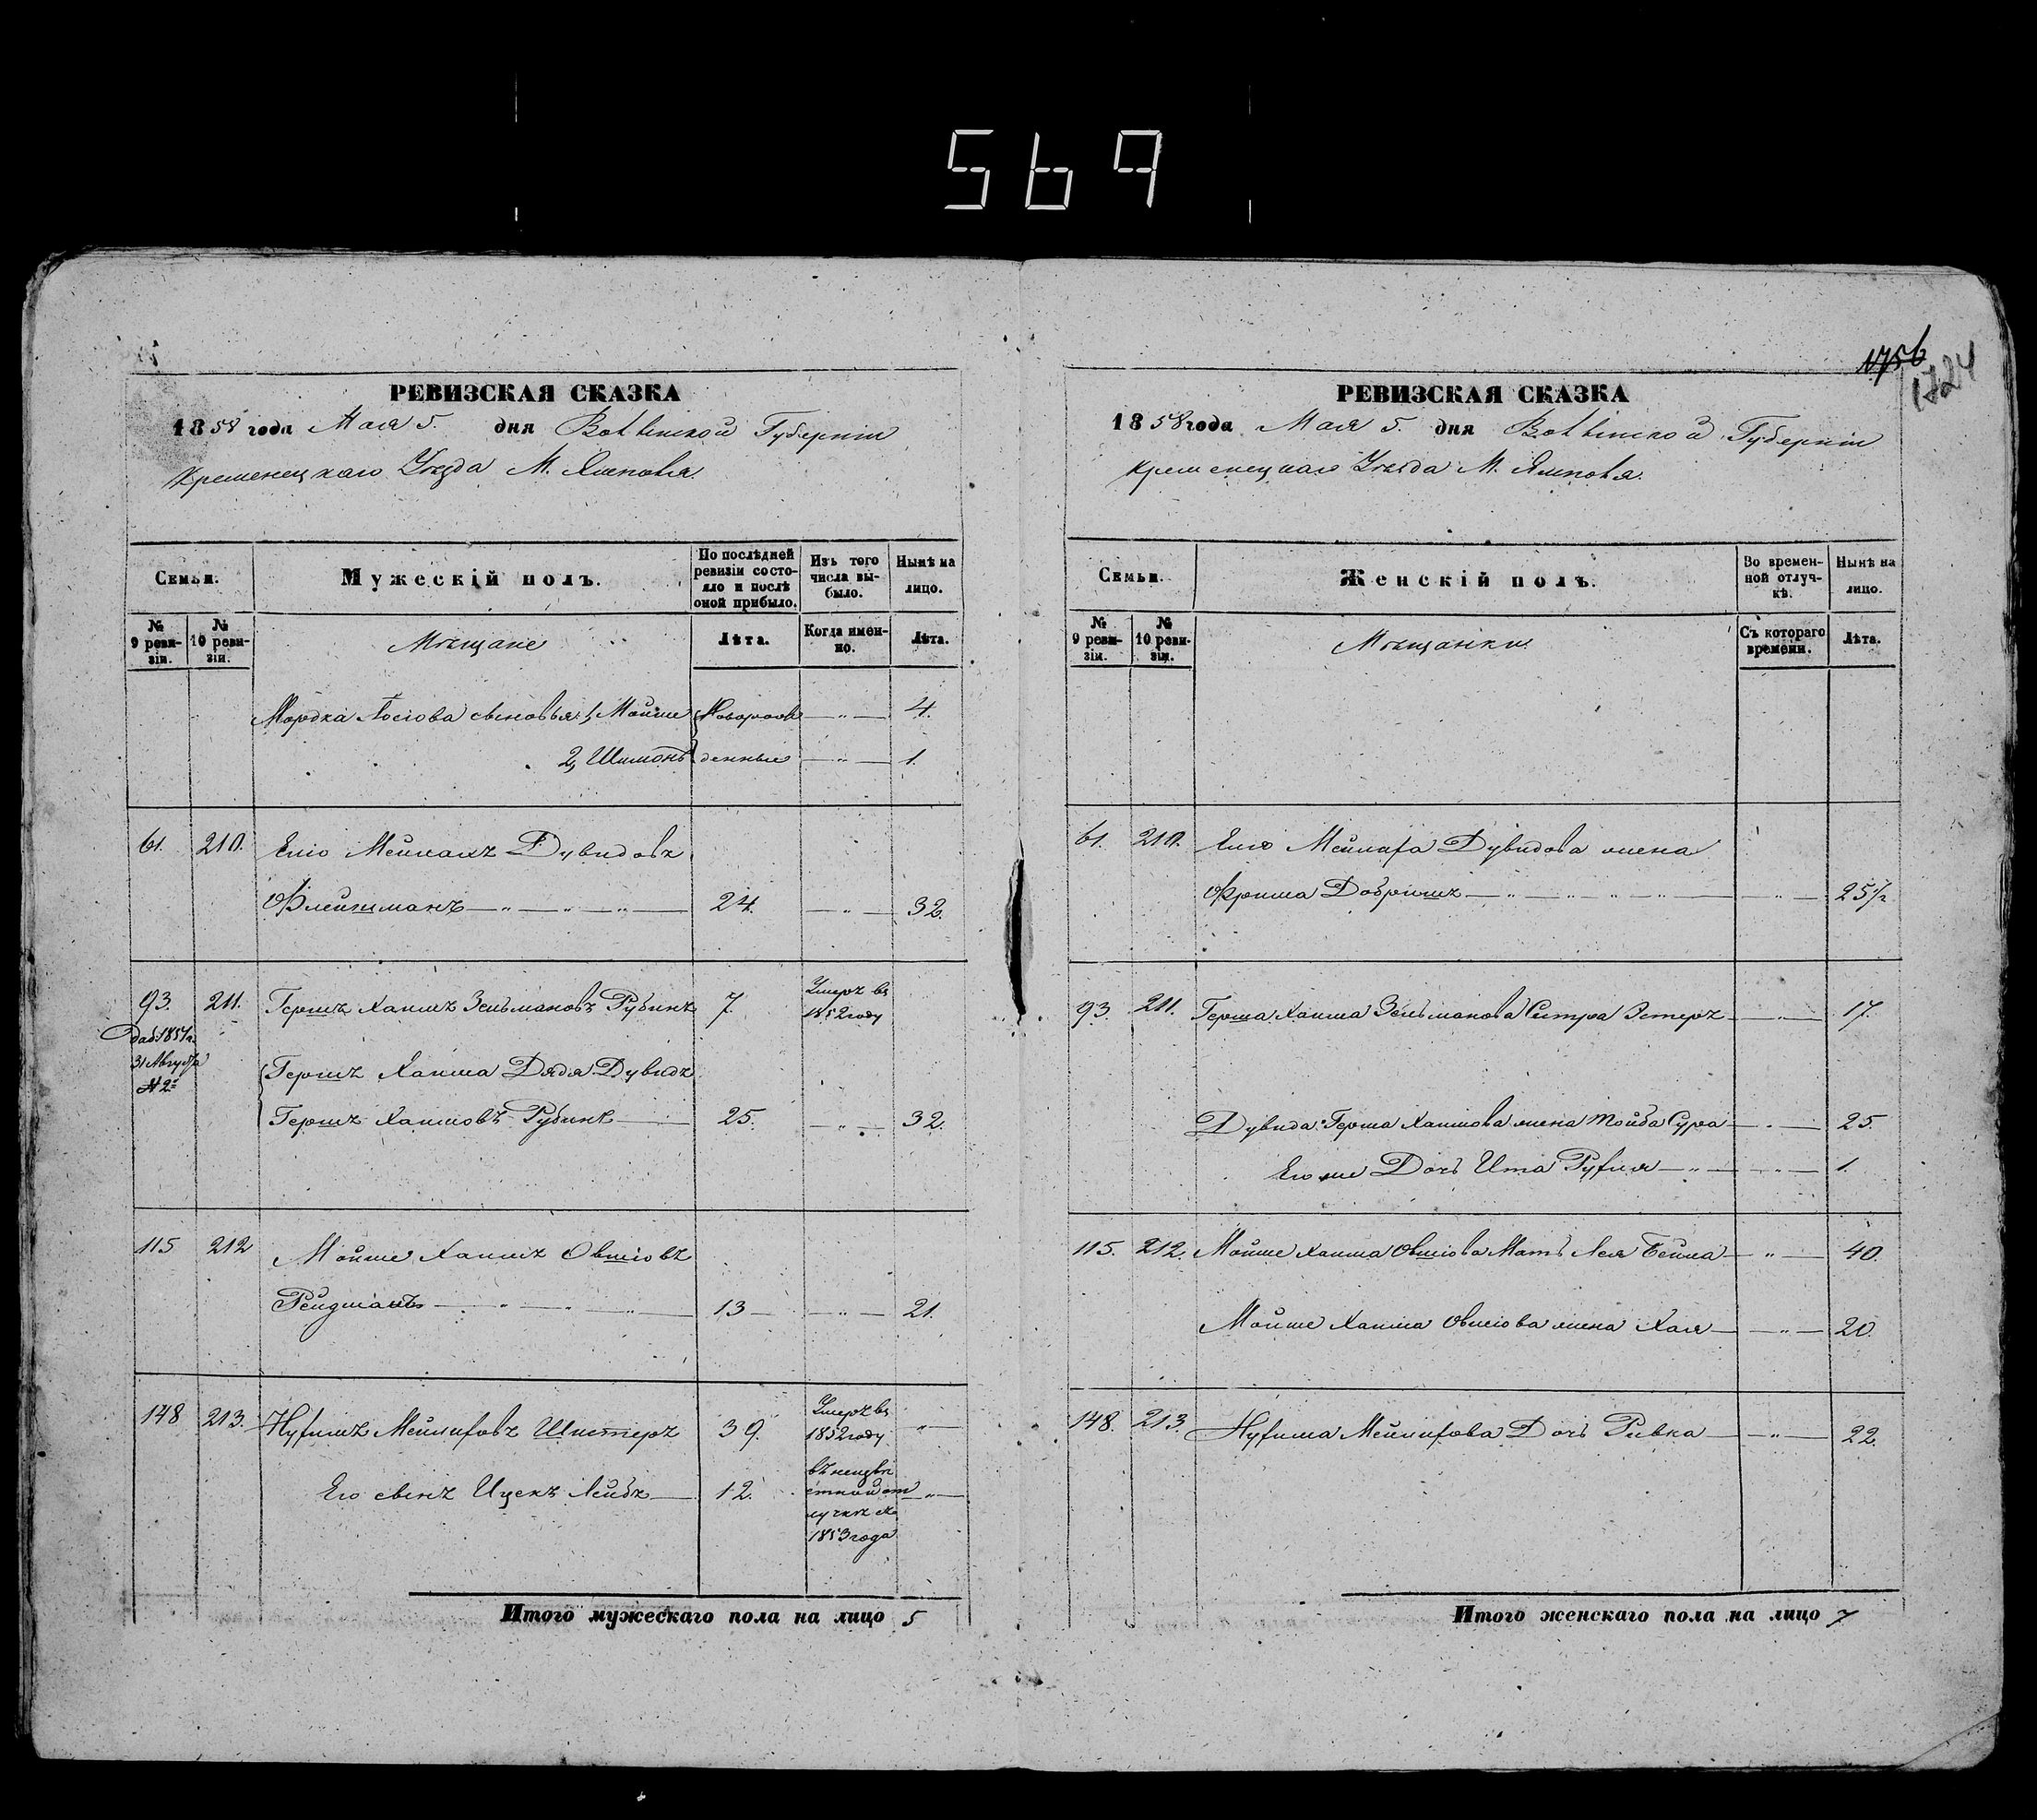 569
1756
1724
РЕВИЗСКАЯ СКАЗКА
1858 года Мая 5. дня Волынской Губерніи
Кременецкаго Уѣзда М. Ямполя.
Семьи.
Мужескій полъ.
По послѣдней ревизіи состояло и послѣ оной прибыло.
Изъ того числа выбыло.
Нынѣ на лицо.
№ 9 ревизіи.
№ 10 ревизіи.
Мѣщане
Лѣта.
Когда именно.
Лѣта.
Мордка Іосіова сыновья: 1, Мойше Новорож 4.
2, Шимонъ денные 1.
61. 210. Еліо Мейлахъ Дувидовъ
Флейшманъ 24. 32.
93. 211. Гершъ Хаимъ Зельмановъ Рубинъ 7. Умеръ въ 1852 году
1857 г.
31 Августа
№ 2
Гершъ Хаима Дядя Дувидъ
Гершъ Хаимовъ Рубинъ 25. 32.
115 212 Мойше Хаимъ Овшіовъ
13 21.
148 213. Нухимъ Мейлиховъ Шистеръ 39. Умеръ въ 1852 году
Его сынъ Ицекъ Лейбъ 12. въ неизвѣстной отлучкѣ съ 1853 года
Итого мужескаго пола на лицо 5
РЕВИЗСКАЯ СКАЗКА
1858 года Мая 5. дня Волынской Губерніи
Кременецкаго Уѣзда М. Ямполя.
Семьи.
Женскій полъ.
Во временной отлучкѣ.
Нынѣ на лицо.
№ 9 ревизіи.
№ 10 ревизіи.
Мѣщанки
Съ котораго времени.
Лѣта.
61. 210. Еліо Мейлаха Дувидова жена
Фрима Добришъ 25 1/2
93. 211. Герша Хаима Зельманова Сестра Эстеръ 17.
Дувида Герша Хаимова жена Тойба Сура 25.
Его же Дочь Ита Рухля 1.
115. 212. Мойше Хаима Овшіова Мать Лея Бейла 40.
Мойше Хаима Овшіова жена Хая 20.
148. 213. Нухима Мейлихова Дочь Ривка 22.
Итого женскаго пола на лицо 7